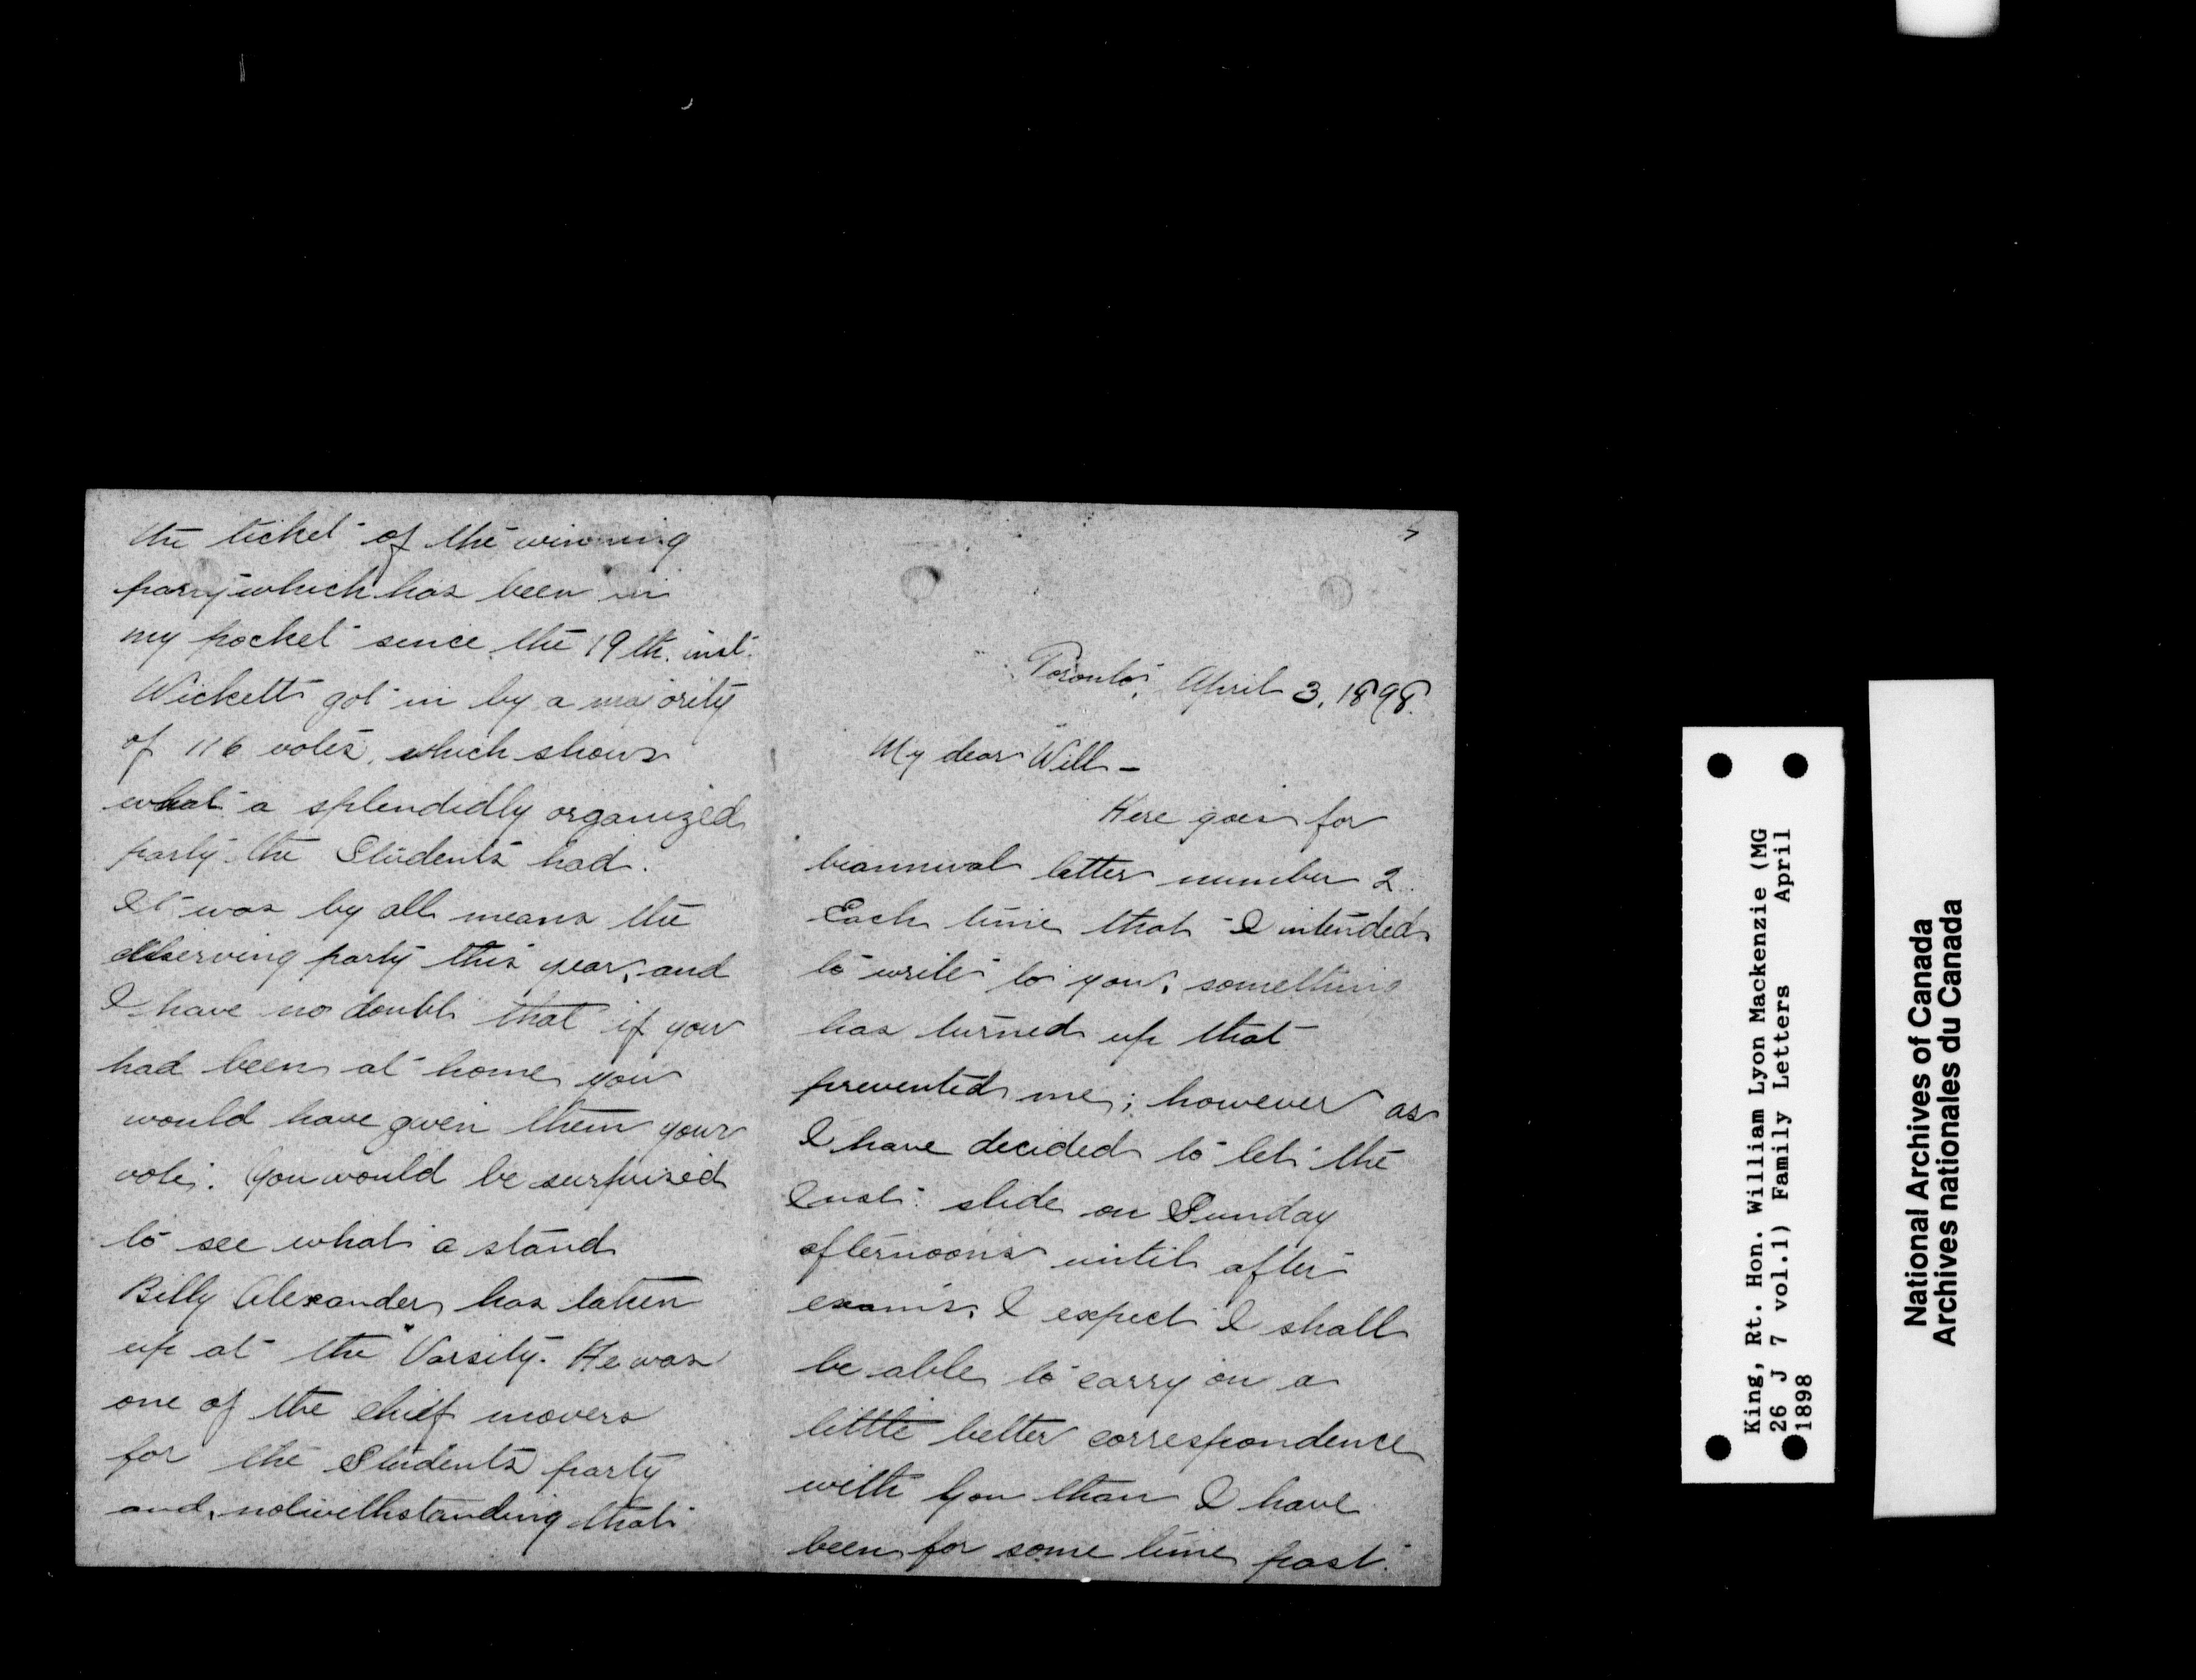 the ticket of the winning
party which has been in
my pocket since the 19th. inst.
Wickett got in by a majority
of 116 votes, which shows
what a splendidly organized
party the Students had.
It was by all means the
deserving party this year, and
I have no doubt that if you
had been at home you
would have given them your
vote. You would be surprised
to see what a stand
Billy Alexander has taken
up at the Varsity. He was
one of the chief movers
for the Students party
and, notwithstanding that
Toronto, April 3, 1898.
My dear Will -
Here goes for
biannual letter number 2.
Each time that I intended
to write to you, something
has turned up that
prevented me; however as
I have decided to let the
Inst. slide on Sunday
afternoons until after
exams, I expect I shall
be able to carry on a
little better correspondence
with you than I have
been for some time past.
King, Rt. Hon. William Lyon Mackenzie (MG
26 J 7 vol.1) Family Letters April
1898
National Archives of Canada
Archives nationales du Canada